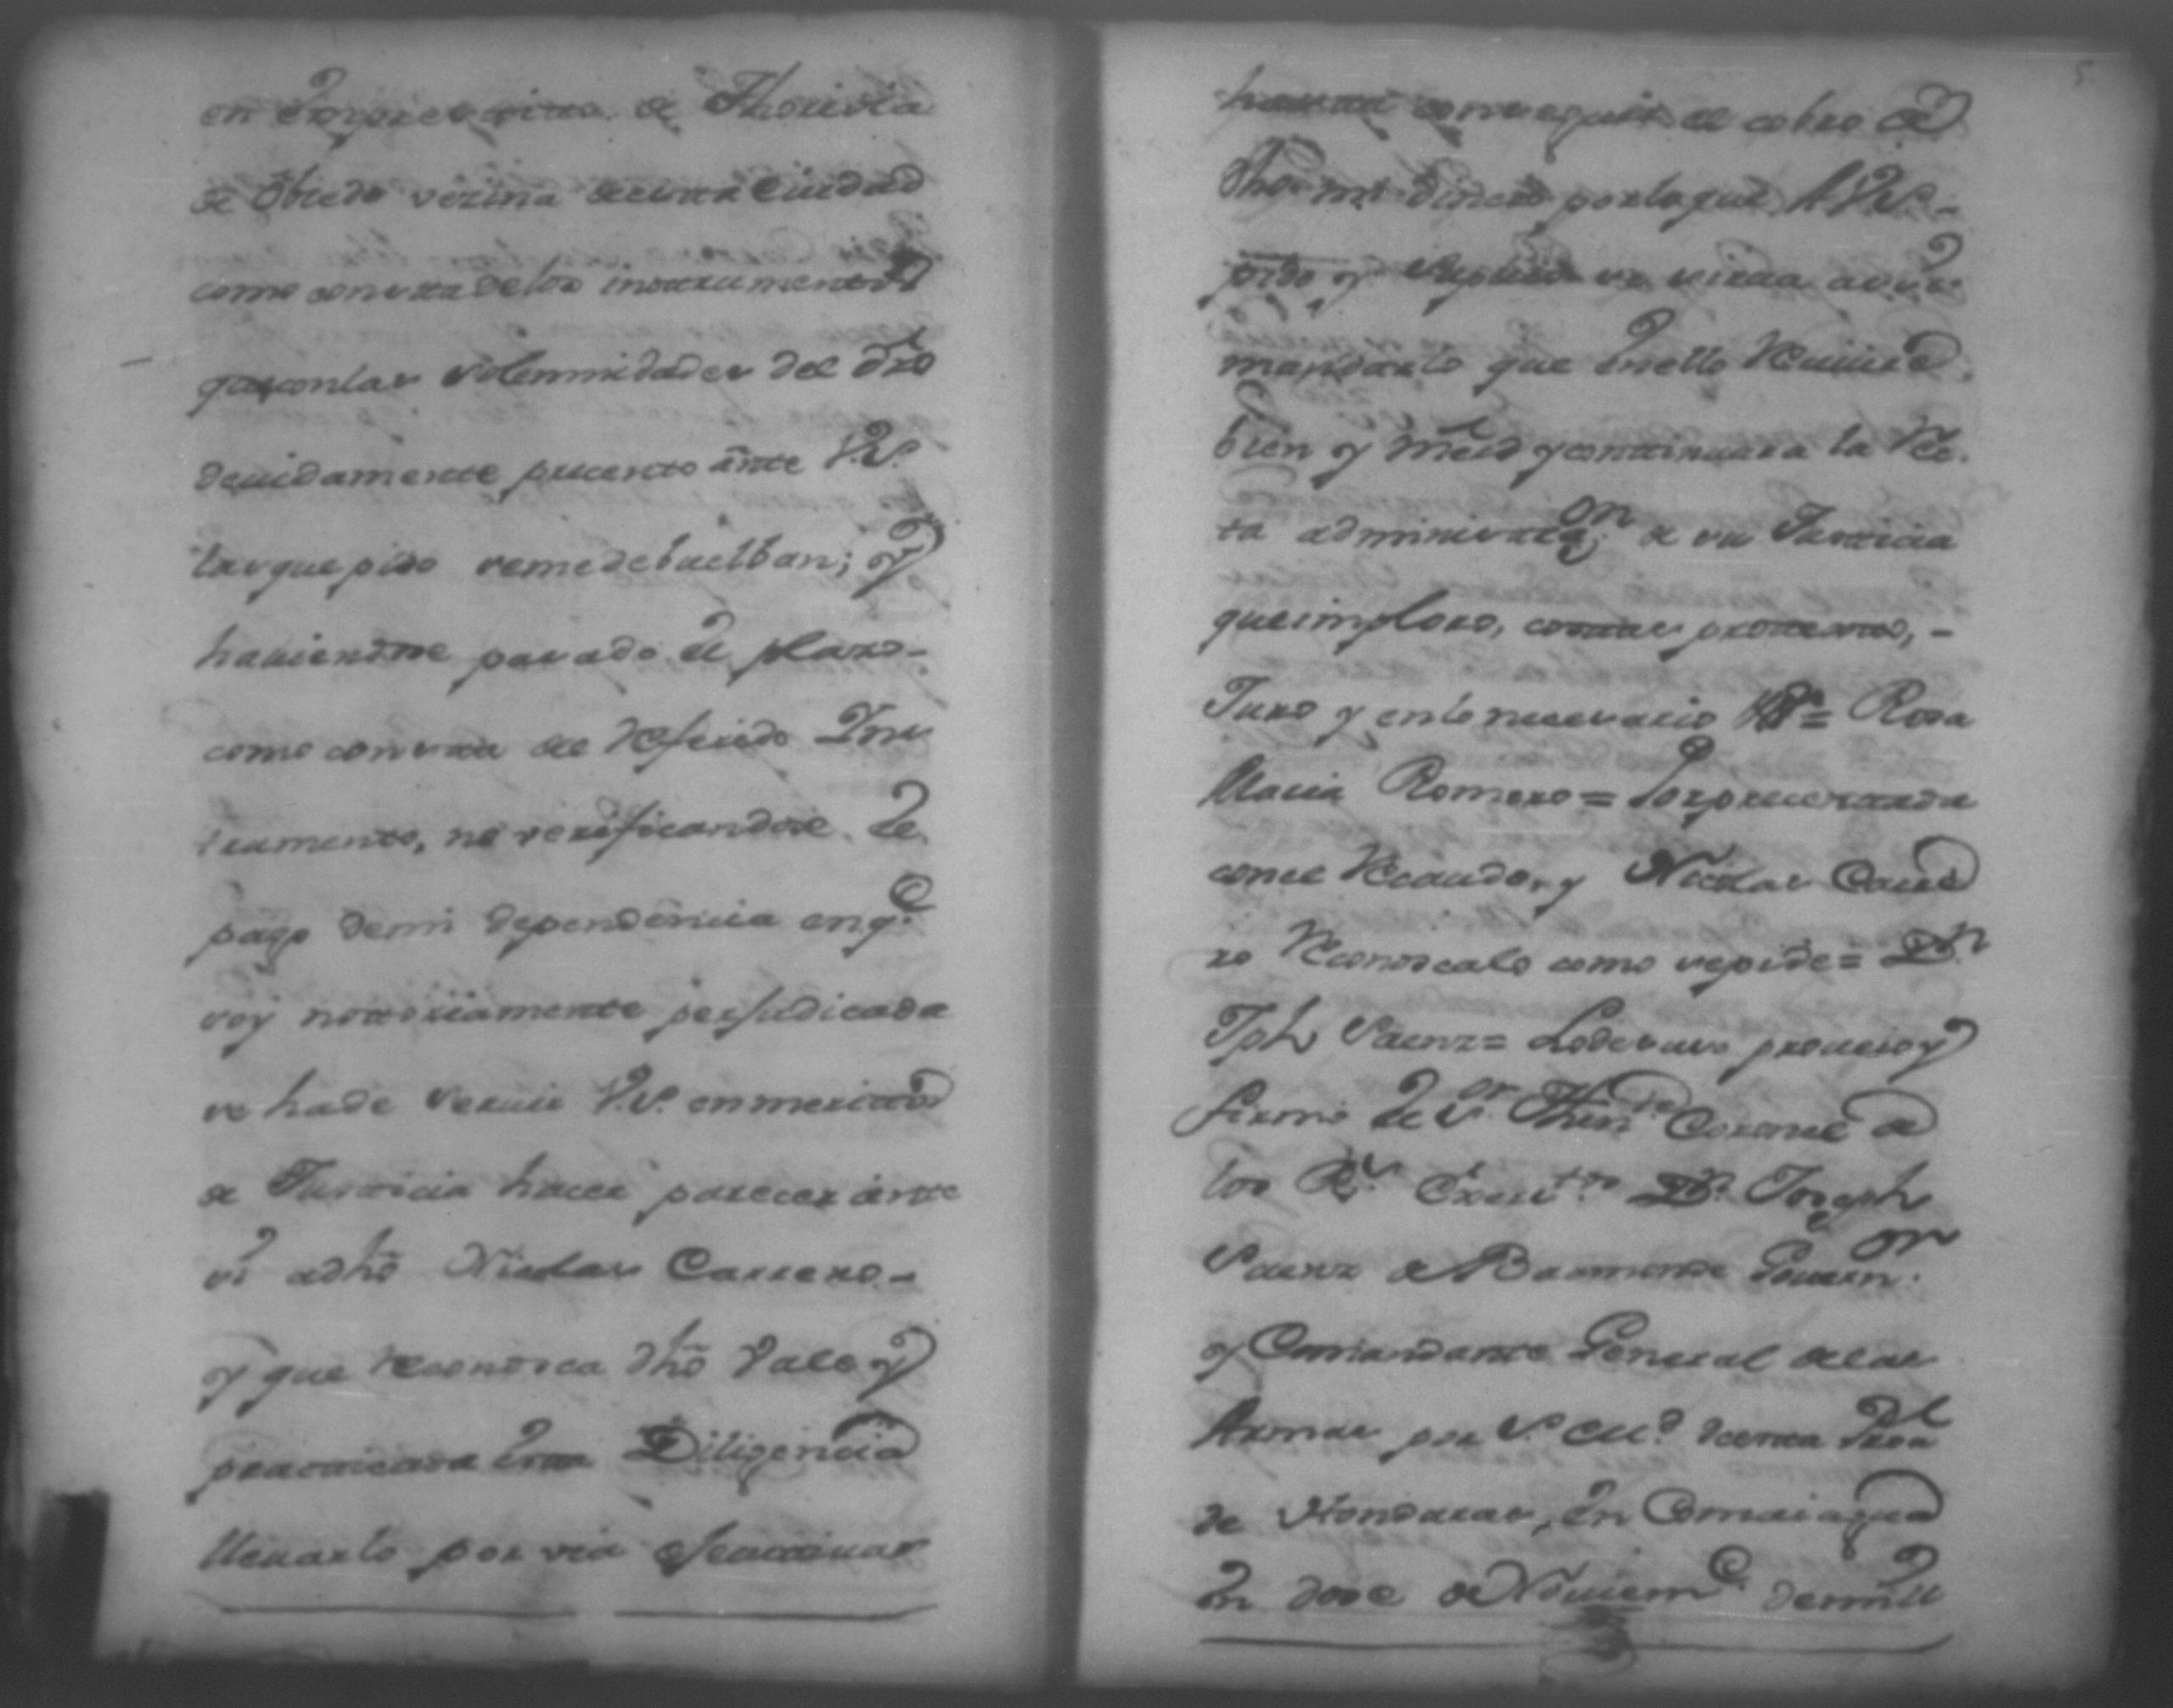 en de Thorivia
de Obiedo vezina de esta Ciudad
como consta de los instrumentos
que con las solemnidades del dro
devidamente presento ante V.S.
las que pido se me debuelban; y
haviendose pasado el plazo-
como consta del Referido Ins
trumento, no verificandose el
pago de mi dependencia en q.e
soy nottoriamente perjudicada
se ha de servir V.S. en meritos
de Justicia hacer parecer ante
si a dho Nicolas Carrero-
y que reconosca dho Vale y
practicada esta Diligencia
llevarlo por via efecutiva
hasta conseguir el cobro de
dho mi dinero por lo que A V.S.-
pido y Suplico se sirva assi
mandarlo que en ello Reciviré
bien y mrd y continuara la Rec
ta administra.on de su Justicia
que imploro, costas protesto,-
Juro y en lo necesario V.a= Rosa
Maria Romero= Por presentada
con el Recaudo, y Nicolas Carre
ro Reconoscalo como se pide= D.n
Jph Saenz= Lo de suso proveio y
firmó el S.or Then.te Coronel de
los R.s Exercitos D.n Joseph
Saenz Govern.or
y Comandante General de las
Armas por S. M.d de esta Prov.a
de Honduras, en Comaiagua
en dose de Noviem.e de mill
5.